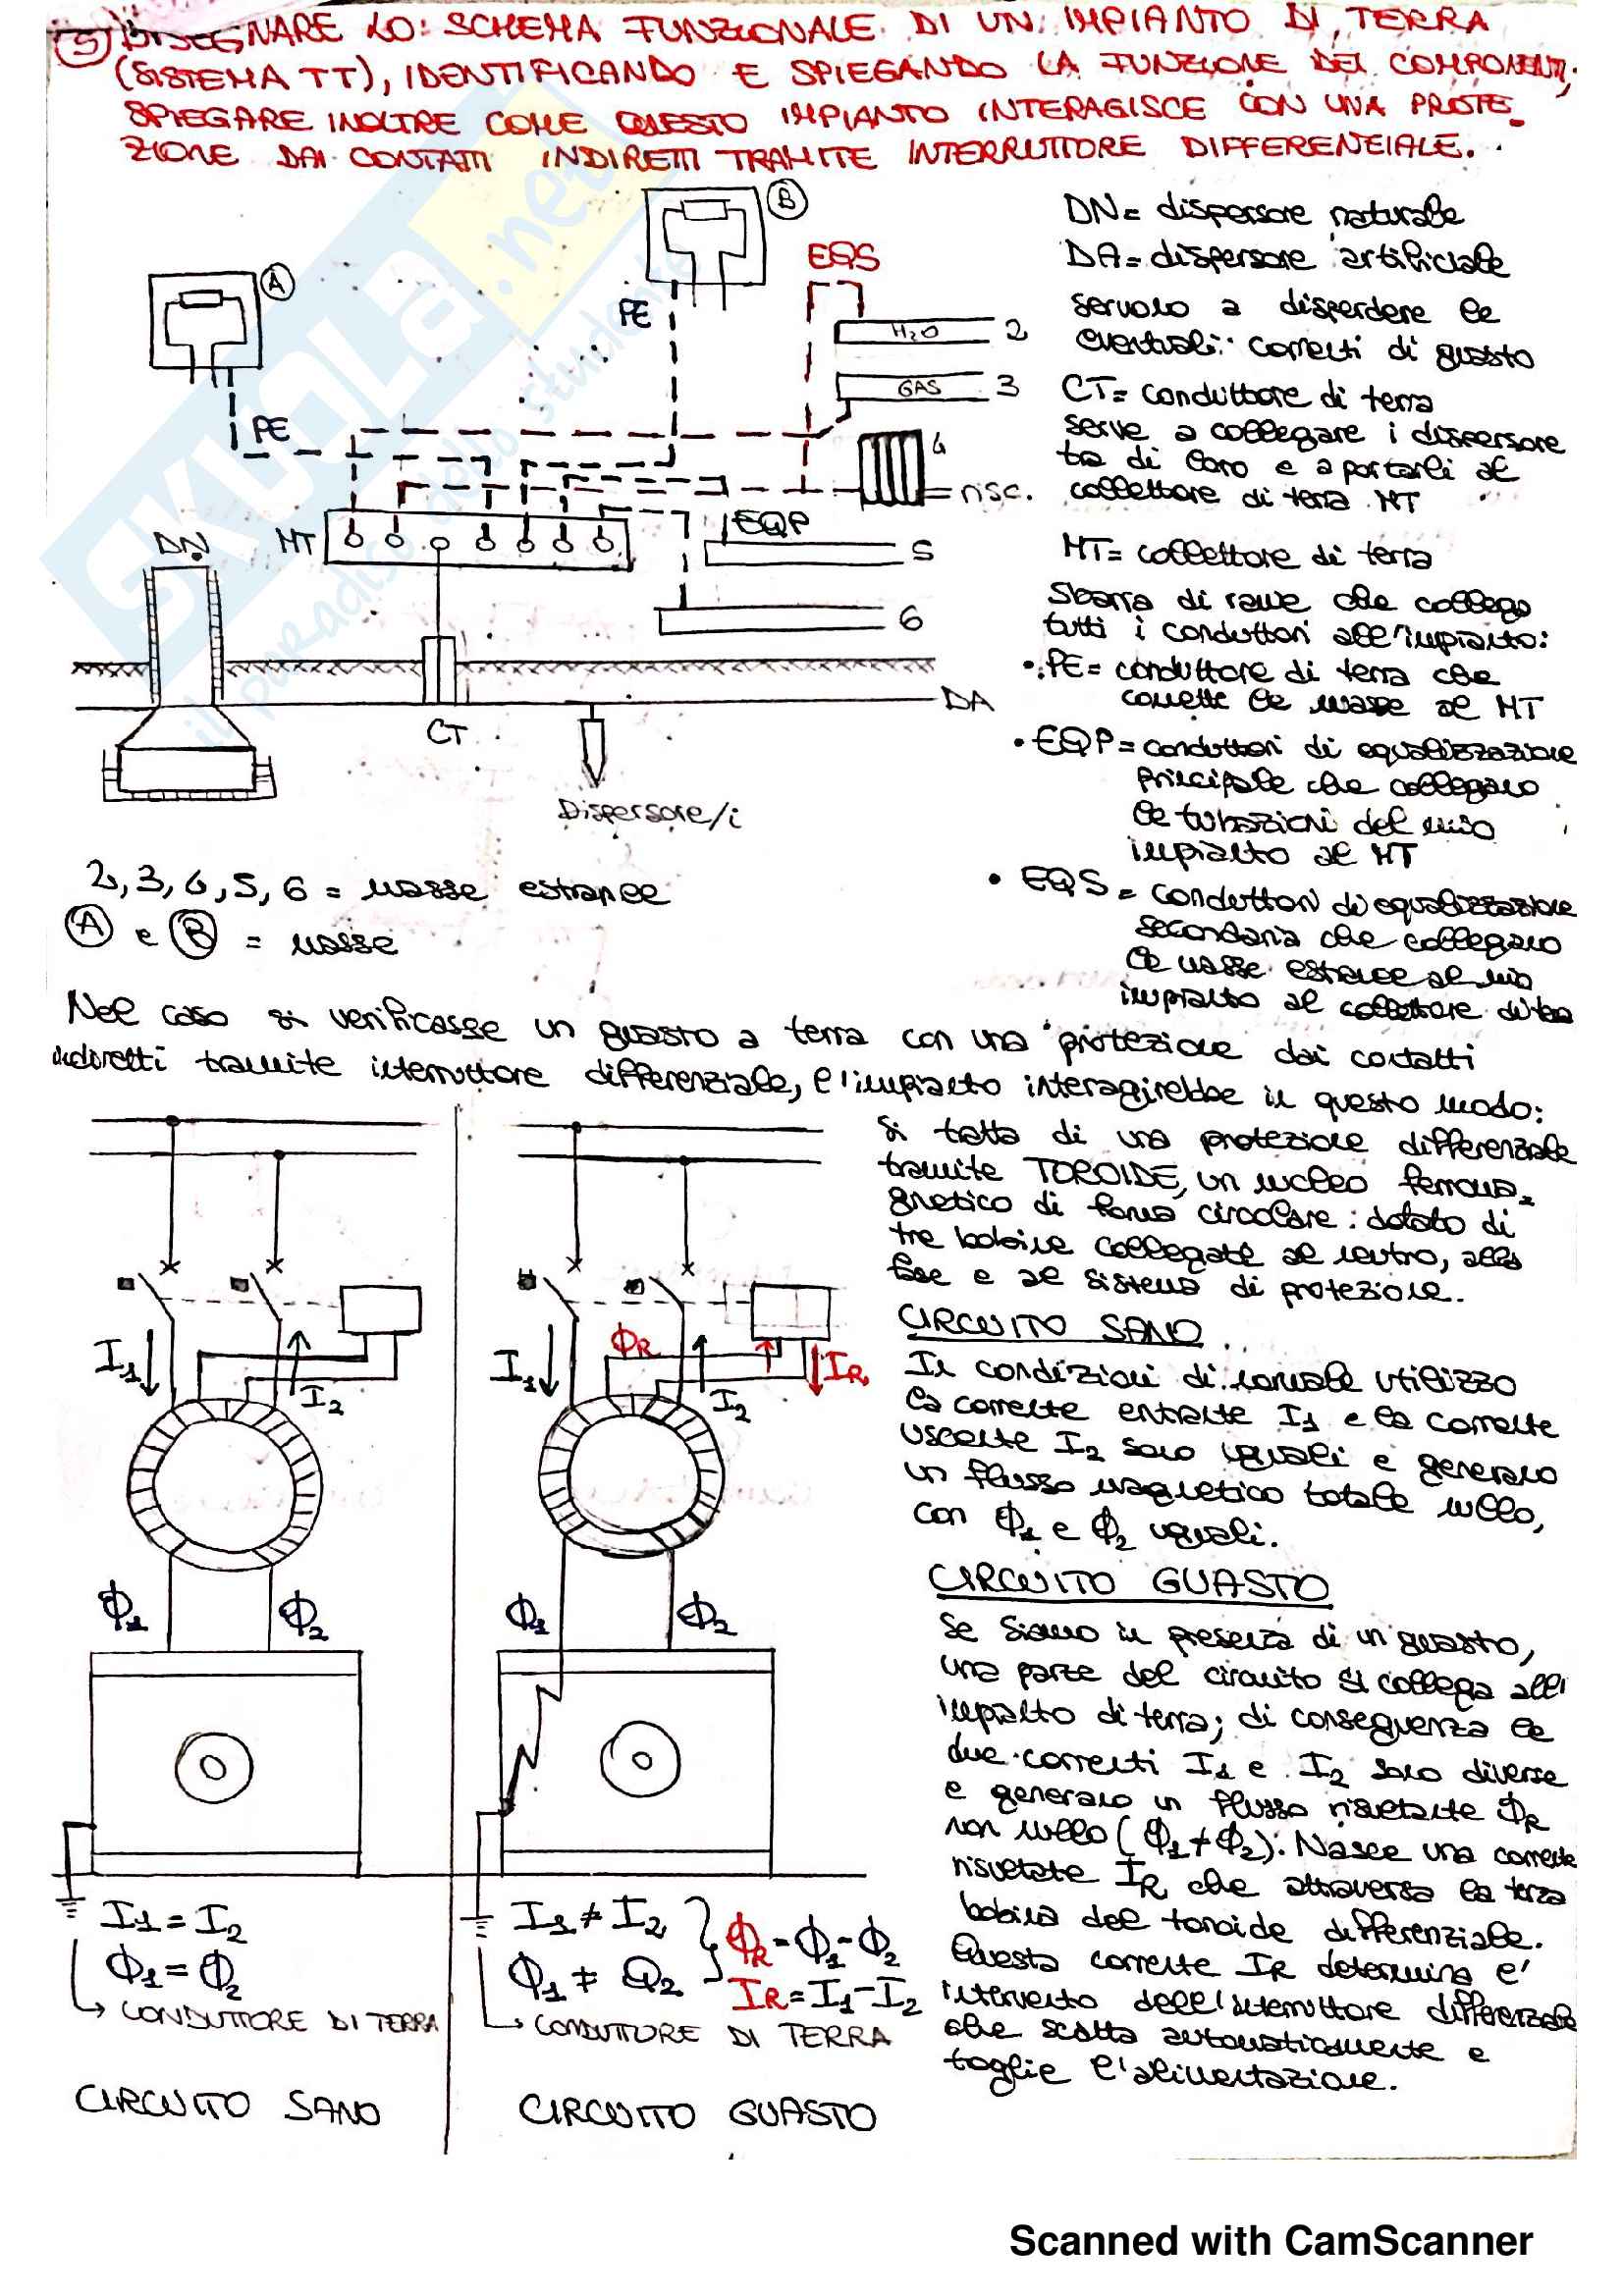 5) DISEGNARE LO SCHEMA FUNZIONALE DI UN IMPIANTO DI TERRA
(SISTEMA TT), IDENTIFICANDO E SPIEGANDO LA FUNZIONE DEI COMPONENTI;
SPIEGARE INOLTRE COME QUESTO IMPIANTO INTERAGISCE CON UNA PROTE-
ZIONE DAI CONTATTI INDIRETTI TRAMITE INTERRUTTORE DIFFERENZIALE.
A
B
PE
PE
EQS
H2O 2
GAS 3
4
risc.
EQP
5
6
MT
DN
CT
DA
Dispersore/i
SKUOLA.net
il paradiso dello studente
DN= dispersore naturale
DA= dispersore artificiale
servono a disperdere le
eventuali correnti di guasto
CT= conduttore di terra
serve a collegare i dispersore
tra di loro e a portarli al
collettore di terra MT
MT= collettore di terra
Sbarra di rame che collega
tutti i conduttori all'impianto:
• PE= conduttore di terra che
connette le masse al MT
• EQP= conduttori di equalizzazione
principale che collegano
le tubazioni del mio
impianto al MT
• EQS= conduttori di equalizzazione
secondaria che collegano
le masse estranee al mio
impianto al collettore di
2, 3, 4, 5, 6 = masse estranee
A e B = masse
Nel caso si verificasse un guasto a terra con una protezione dai contatti
indiretti tramite interruttore differenziale, l'impianto interagirebbe in questo modo:
Si tratta di una protezione differenziale
tramite TOROIDE, un nucleo ferroma-
gnetico di forma circolare: dotato di
tre bobine collegate al neutro, alla
fase e al sistema di protezione.
CIRCUITO SANO
In condizioni di normale utilizzo
la corrente entrante I1 e la corrente
uscente I2 sono uguali e generano
un flusso magnetico totale nullo,
con Φ1 e Φ2 uguali.
CIRCUITO GUASTO
Se siamo in presenza di un guasto,
una parte del circuito si collega all'
impianto di terra; di conseguenza le
due correnti I1 e I2 sono diverse
e generano un flusso risultante ΦR
non nullo (Φ1≠Φ2). Nasce una corrente
risultate IR che attraversa la terza
bobina del toroide differenziale.
Questa corrente IR determina l'
intervento dell'interruttore differenziale
che scatta automaticamente e
toglie l'alimentazione.
I1
I2
Φ1
Φ2
I1 = I2
Φ1 = Φ2
CONDUTTORE DI TERRA
CIRCUITO SANO
ΦR
I1
I2
IR
Φ1
Φ2
I1 ≠ I2
Φ1 ≠ Φ2
ΦR = Φ1 - Φ2
IR = I1 - I2
CONDUTTORE DI TERRA
CIRCUITO GUASTO
Scanned with CamScanner